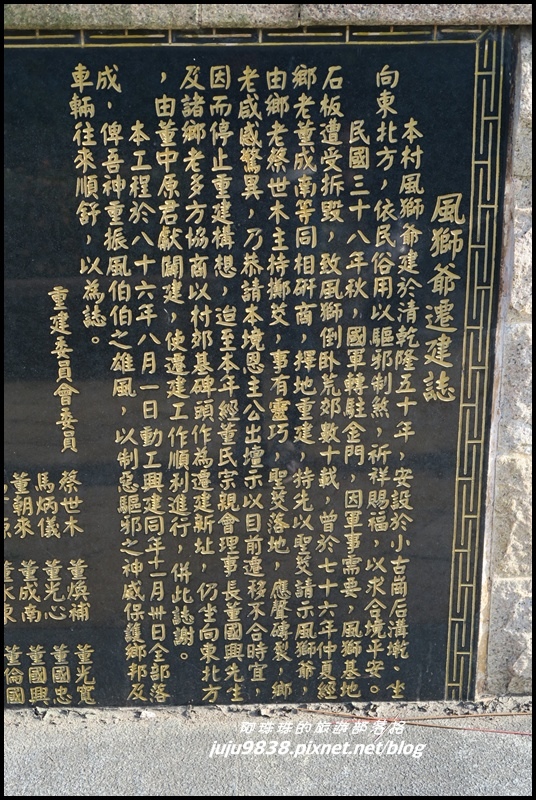 風獅爺遷建誌
本村風獅爺建於清乾隆五十年，安設於小古崗后溝墘、坐
向東北方，依民俗用以驅邪制煞，祈祥賜福，以求合境平安。
民國三十八年秋，國軍轉駐金門，因軍事需要，風獅基地
石板遭受拆毀，致風獅倒臥荒郊數十載，曾於七十六年仲夏經
鄉老董成南等同相研商，擇地重建，特先以聖筊請示風獅爺，
由鄉老蔡世木主持擲筊，事有靈巧，聖筊落地，應聲磚裂，鄉
老咸感驚異，乃恭請本境恩主公出壇示以目前遷移不合時宜，
因而停止重建構想，迨至本年經董氏宗親會理事長董國興先生
及諸鄉老多方協商以村郊基碑頭作為遷建新址，仍坐向東北方
，由董中原君獻闢建，使遷建工作順利進行，併此誌謝。
本工程於八十六年八月一日動工興建同年十一月卅日全部落
成，俾吾神重振風伯伯之雄風，以制惡驅邪之神威保護鄉邦及
車輛往來順舒，以為誌。
重建委員會委員
蔡世木 董嬪補 董光寬
馬炳儀 董光心 董國忠
董朝來 董成南 董國興
董倫國
juju9838.pixnet.net/blog